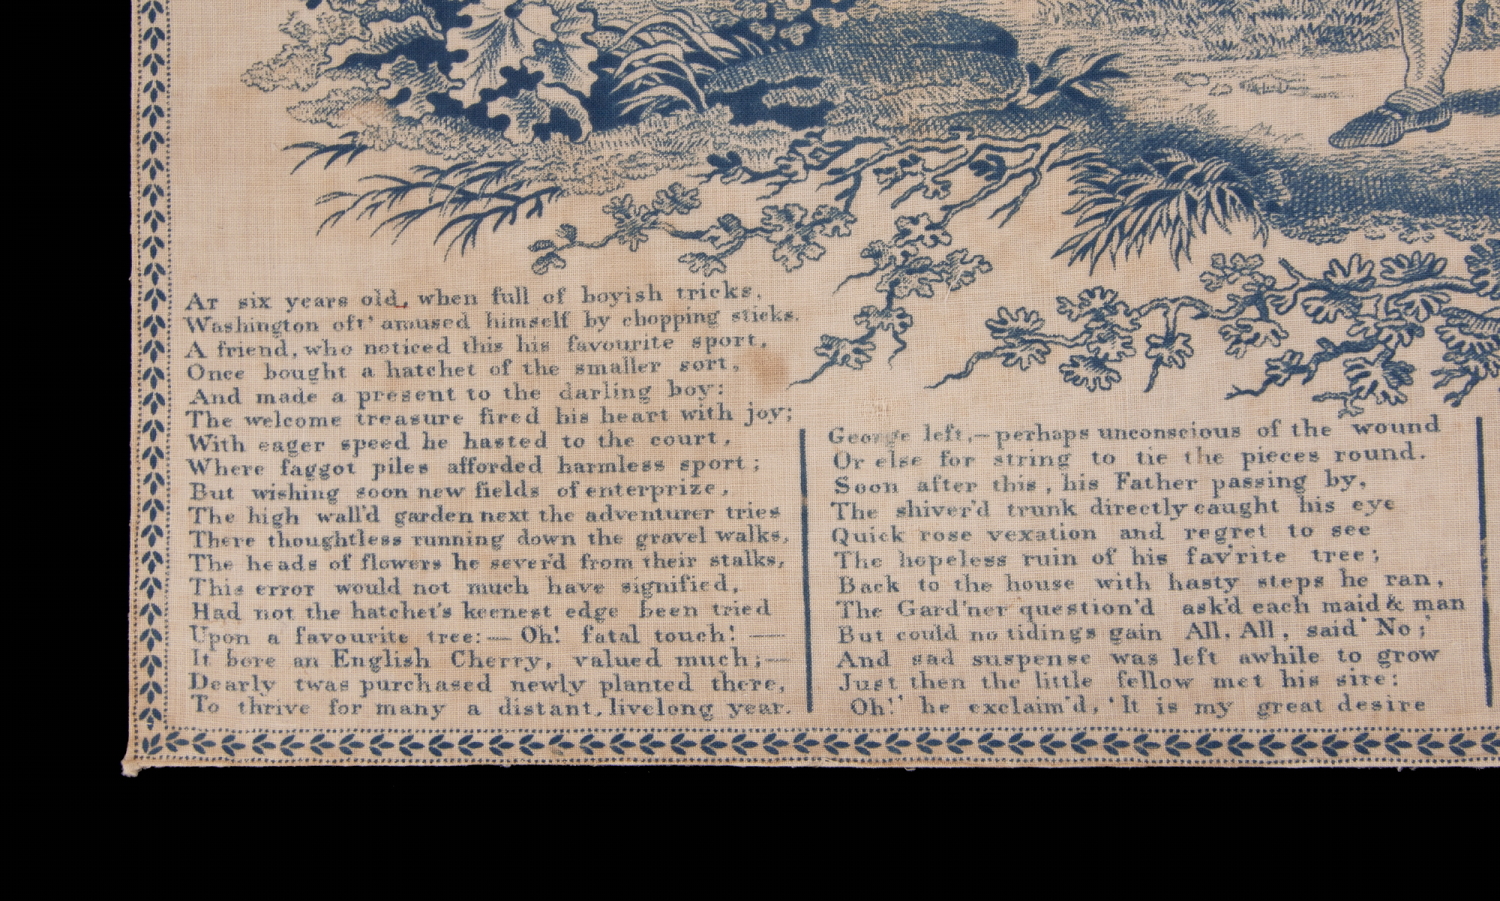 At six years old, when full of boyish tricks,
Washington oft' amused himself by chopping sticks.
A friend, who noticed this his favourite sport,
Once bought a hatchet of the smaller sort,
And made a present to the darling boy:
The welcome treasure fired his heart with joy;
With eager speed he hasted to the court,
Where faggot piles afforded harmless sport;
But wishing soon new fields of enterprize,
The high wall'd garden next the adventurer tries
There thoughtless running down the gravel walks,
The heads of flowers he sever'd from their stalks,
This error would not much have signified,
Had not the hatchet's keenest edge been tried
Upon a favourite tree:— Oh! fatal touch! —
It bore an English Cherry, valued much;—
Dearly twas purchased newly planted there,
To thrive for many a distant, livelong year.
George left,— perhaps unconscious of the wound
Or else for string to tie the pieces round.
Soon after this, his Father passing by,
The shiver'd trunk directly caught his eye
Quick rose vexation and regret to see
The hopeless ruin of his fav'rite tree;
Back to the house with hasty steps he ran,
The Gard'ner question'd ask'd each maid & man
But could no tidings gain All, All, said 'No;'
And sad suspense was left awhile to grow
Just then the little fellow met his sire:
Oh!' he exclaim'd, 'It is my great desire